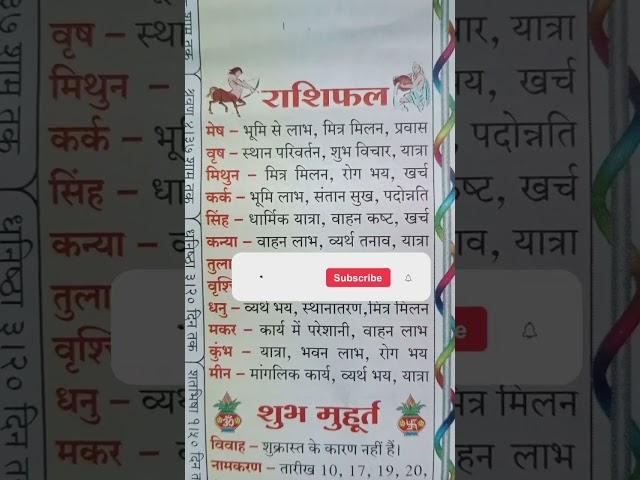 राशिफल
मेष – भूमि से लाभ, मित्र मिलन, प्रवास
वृष – स्थान परिवर्तन, शुभ विचार, यात्रा
मिथुन – मित्र मिलन, रोग भय, खर्च
कर्क – भूमि लाभ, संतान सुख, पदोन्नति
सिंह – धार्मिक यात्रा, वाहन कष्ट, खर्च
कन्या – वाहन लाभ, व्यर्थ तनाव, यात्रा
तुला
Subscribe
धनु – व्यर्थ भय, स्थानातरण,मित्र मिलन
मकर – कार्य में परेशानी, वाहन लाभ
कुंभ – यात्रा, भवन लाभ, रोग भय
मीन – मांगलिक कार्य, व्यर्थ भय, यात्रा
ॐ शुभ मुहूर्त 卐
विवाह – शुक्रास्त के कारण नहीं हैं।
नामकरण – तारीख 10, 17, 19, 20,